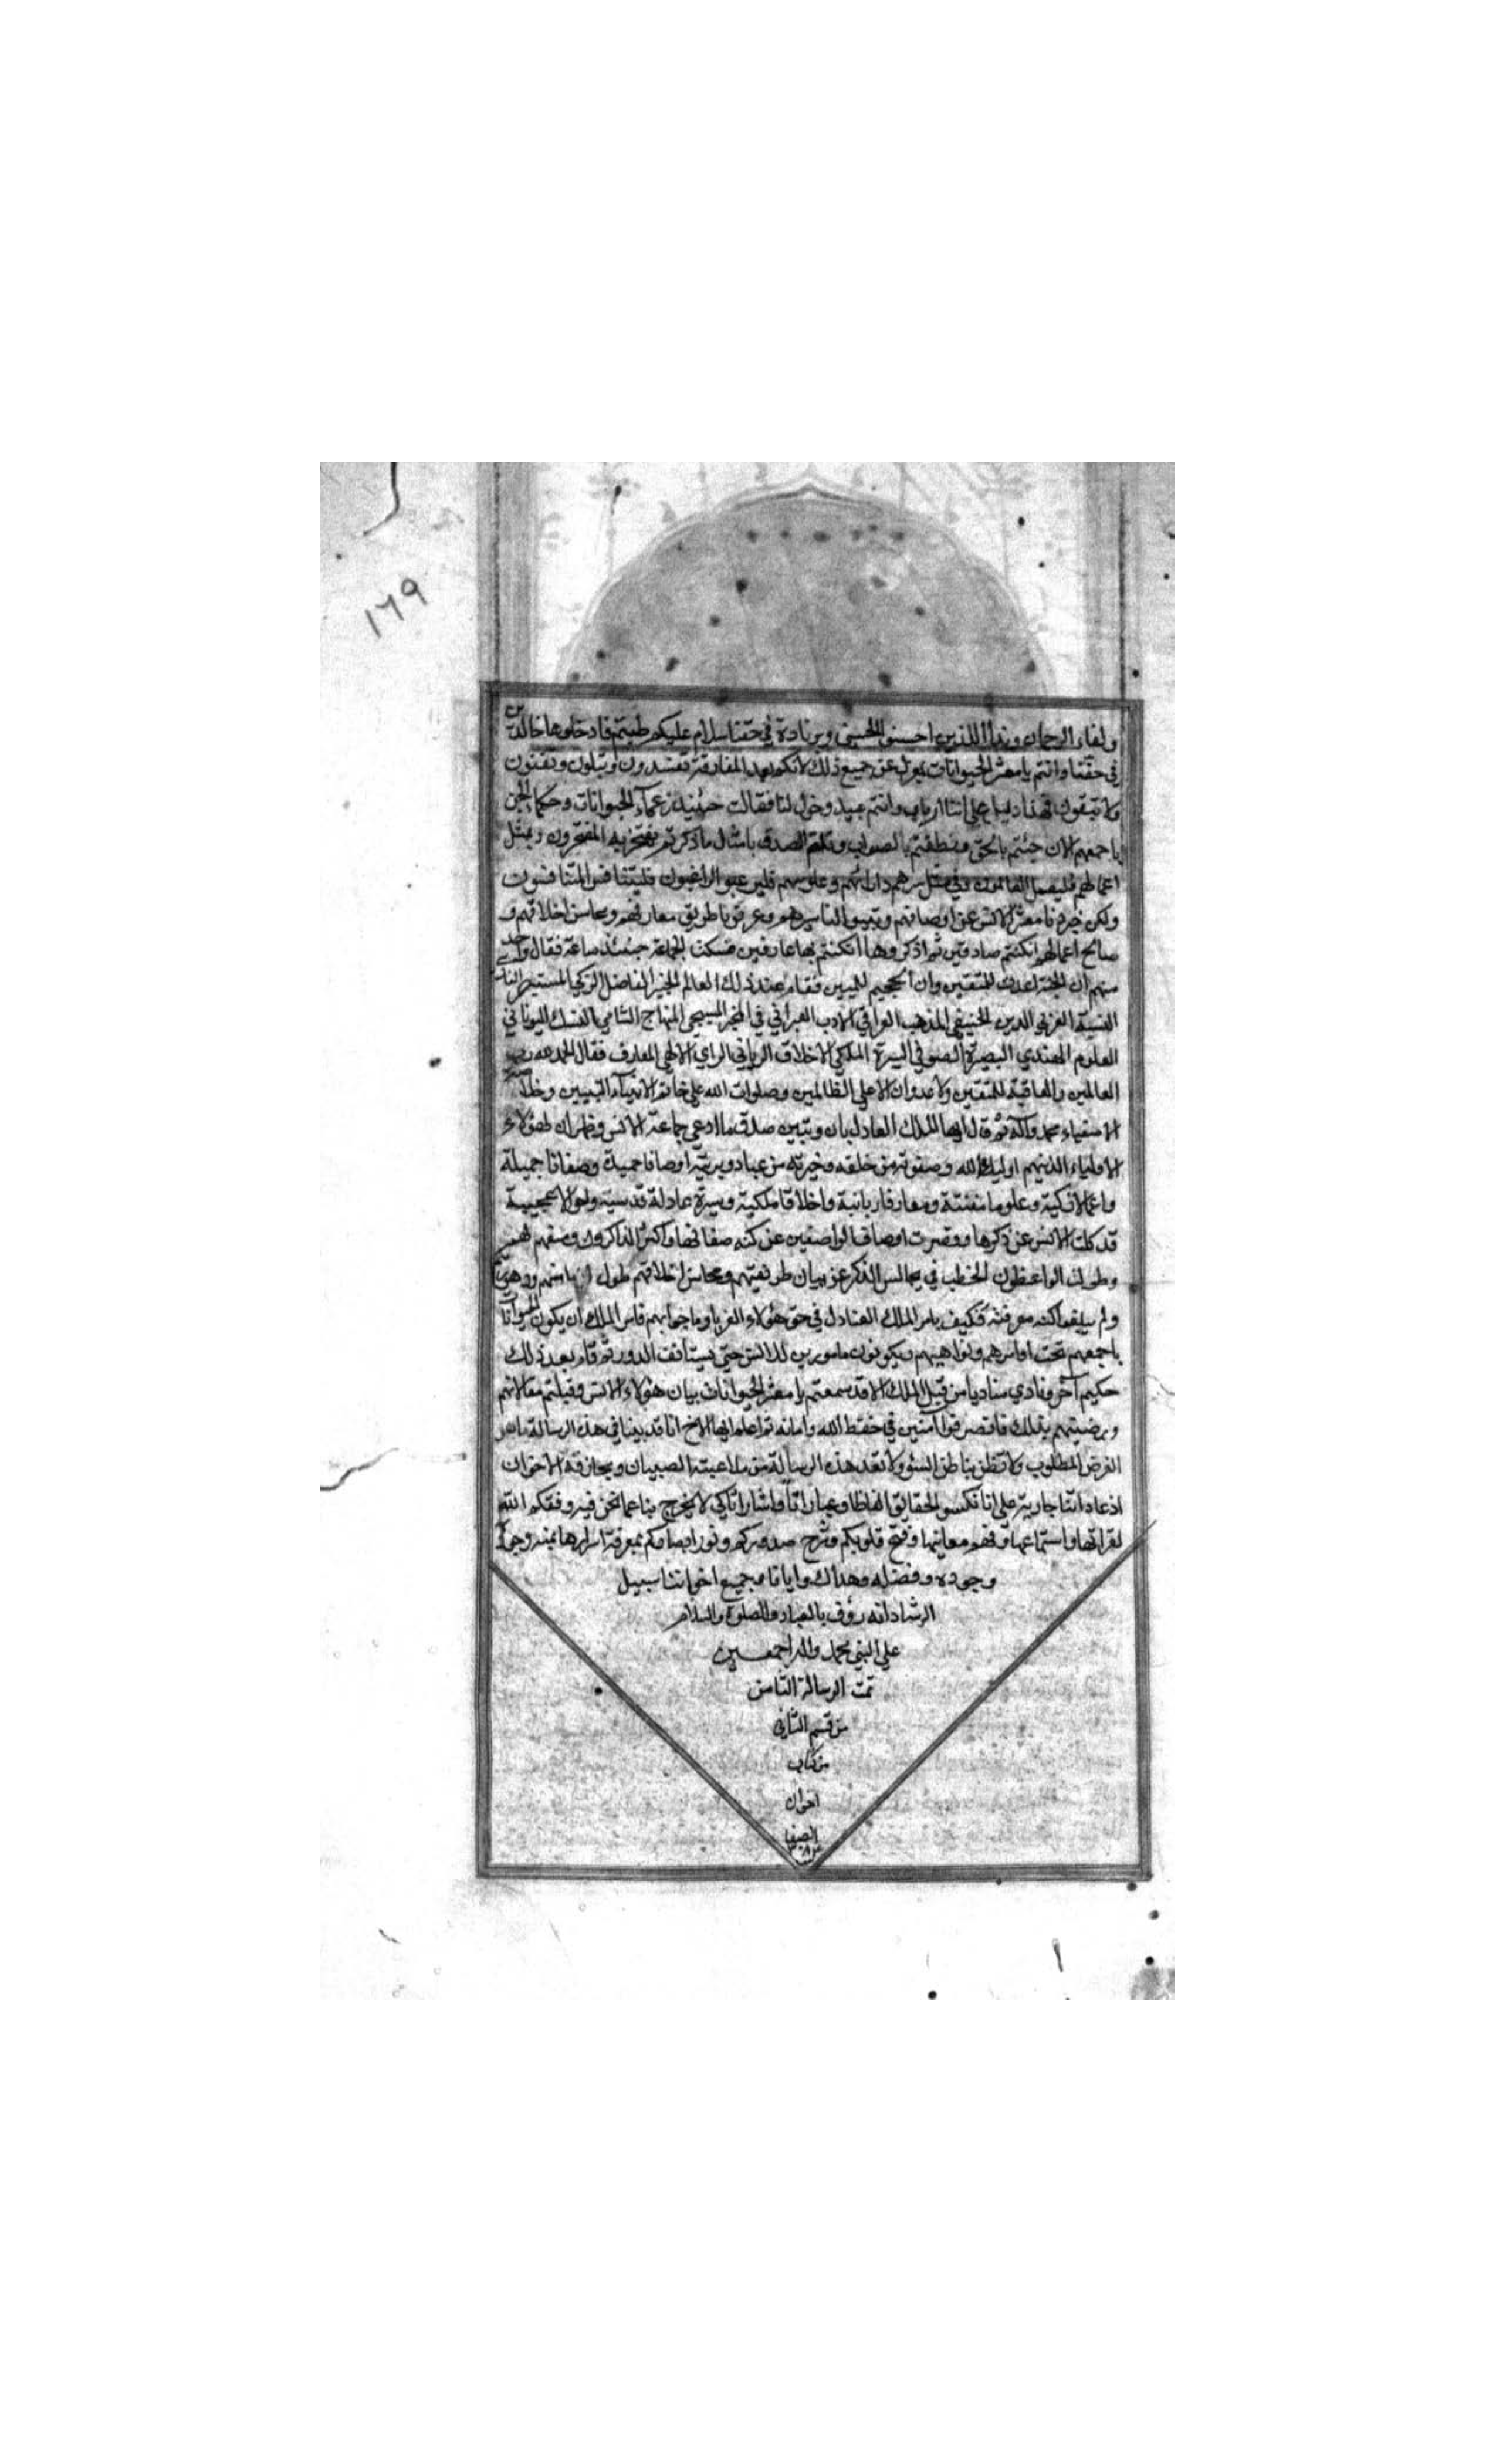 ١٦٩
ولقاء الرحمان وندأ للذين احسنوا الحسنى وبزنادة في حقنا سلام عليكم طبتم فادخلوها خالدين
في حقنا وانتم يا معشر الحيوانات بمعزل عن جميع ذلك لانكم بعد المفارقة تفسدرون وتبلون وتفنون
ولا تبقون فهذا دليل على اننا ارباب وانتم عبيد وخول لنا فقالت حينئذ زعمآء الحيوانات وحكماء الجن
باجمعهم الان جئتم بالحق ونطقتم بالصواب وقلتم الصدق بامثال ما ذكرتم تفتخر به المفتخرون وبمثل
اعمالهم فليعمل العاملون وفي مثل سيرهم وعلومهم فليرغبوا الراغبون فليتنافس المتنافسون
ولكن خبرونا معشر الانس عن اوصافهم وتبينوا لنا سيرهم وعرفونا طريق معارفهم ومحاسن اخلاقهم و
صالح اعمالهم انكنتم صادقين ثم اذكروها انكنتم بها عارفين فسكت الجماعة حينئذ ساعة فقال واحد
منهم ان الجنة اعدت للمتقين وان الجحيم فقام عند ذلك العالم الخبير الفاضل الزكي المستبصر
النسبة العربي الدين الحنيفي المذهب العراقي الادب العبراني في المخبر المسيحي المنهاج الشامي النسك اليوناني
العلوم الهندي البصيرة الصوفي السيرة الملكي الاخلاق الرباني الراي الالهي المعارف فقال الحمد لله رب
العالمين والعاقبة للمتقين ولا عدوان الا على الظالمين وصلوات الله على خاتم الانبيآء النبيين وخلاصة
الاصفياء محمد وآله ثم قال ايها الملك العادل بان وتبين صدق ما ادعى جماعة الانس وظهر ان لهؤلاء
الاولياء الذينهم اولياء الله وصفوته من خلقه وخيرته من عباده وبريته اوصافا حميدة وصفاتا جميلة
واعمالا زكية وعلوما مفننة ومعارفا ربانية واخلاقا ملكية وسيرة عادلة قدسية واحوالا عجيبة
قد كلت الالسن عن ذكرها وقصرت اوصاف الواصفين عن كنه صفاتها واكثر الذاكرون وصفهم لهم
وطولت الواعظون الخطب في مجالس الذكر عن بيان طريقتهم ومحاسن اخلاقهم طول ازمانهم ودهورهم
ولم يبلغوا كنه معرفته فكيف يامر الملك العادل في حق هؤلاء الغربا وما جوابهم فامر الملك ان يكون الحيوانات
باجمعهم تحت اوامرهم ونواهيهم ويكونون مامورين للانس حتى يستأنف الدور ثم قام بعد ذلك
حكيم آخر ونادي مناديا من قبل الملك الا قد سمعتم يا معشر الحيوانات بيان هؤلاء الانس وقبلتم مقالاتهم
ورضيتم بذلك فانصرفوا آمنين في حفظ الله وامانه ثم اعلم ايها الاخ انا قد بينا في هذه الرسالة ماهو
الغرض المطلوب ولا تظن بنا ظن السوء ولا تعد هذه الرسالة من ملاعبته الصبيان ومخارفة الاخوان
اذ عاداتنا جارية على انا نكسو الحقايق الفاظا وعبارات واشاراتا كي لا يخرج بنا عما نحن فيه وفقكم الله
لقرائتها واستماعها وفهم معانيها وفتح قلوبكم وشرح صدوركم ونور ابصاركم بمعرفة اسرارها بمنه
وجوده وفضله وهداك وايانا وجميع اخواننا سبيل
الرشاد انه رؤف بالعباد والصلوة والسلام
على النبي محمد واله اجمعين
تمت الرسالة الثامن
من قسم الثاني
من كتاب
اخوان
الصفا